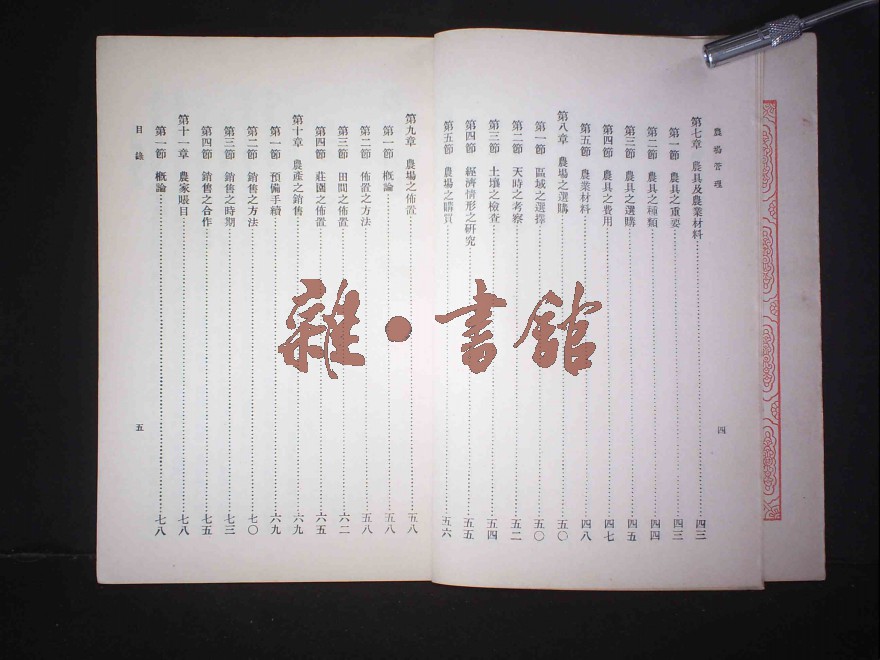 農場管理
第七章 農具及農業材料……四三
第一節 農具之重要……四三
第二節 農具之種類……四四
第三節 農具之選購……四五
第四節 農具之費用……四七
第五節 農業材料……四八
第八章 農場之選購……五〇
第一節 區域之選擇……五〇
第二節 天時之考察……五二
第三節 土壤之檢查……五四
第四節 經濟情形之研究……五五
第五節 農場之購買……五六
四
第九章 農場之佈置……五八
第一節 概論……五八
第二節 佈置之方法……五八
第三節 田間之佈置……六二
第四節 莊園之佈置……六五
第十章 農產之銷售……六九
第一節 預備手續……六九
第二節 銷售之方法……七〇
第三節 銷售之時期……七三
第四節 銷售之合作……七五
第十一章 農家賬目……七八
第一節 概論……七八
目錄
五
雜·書館